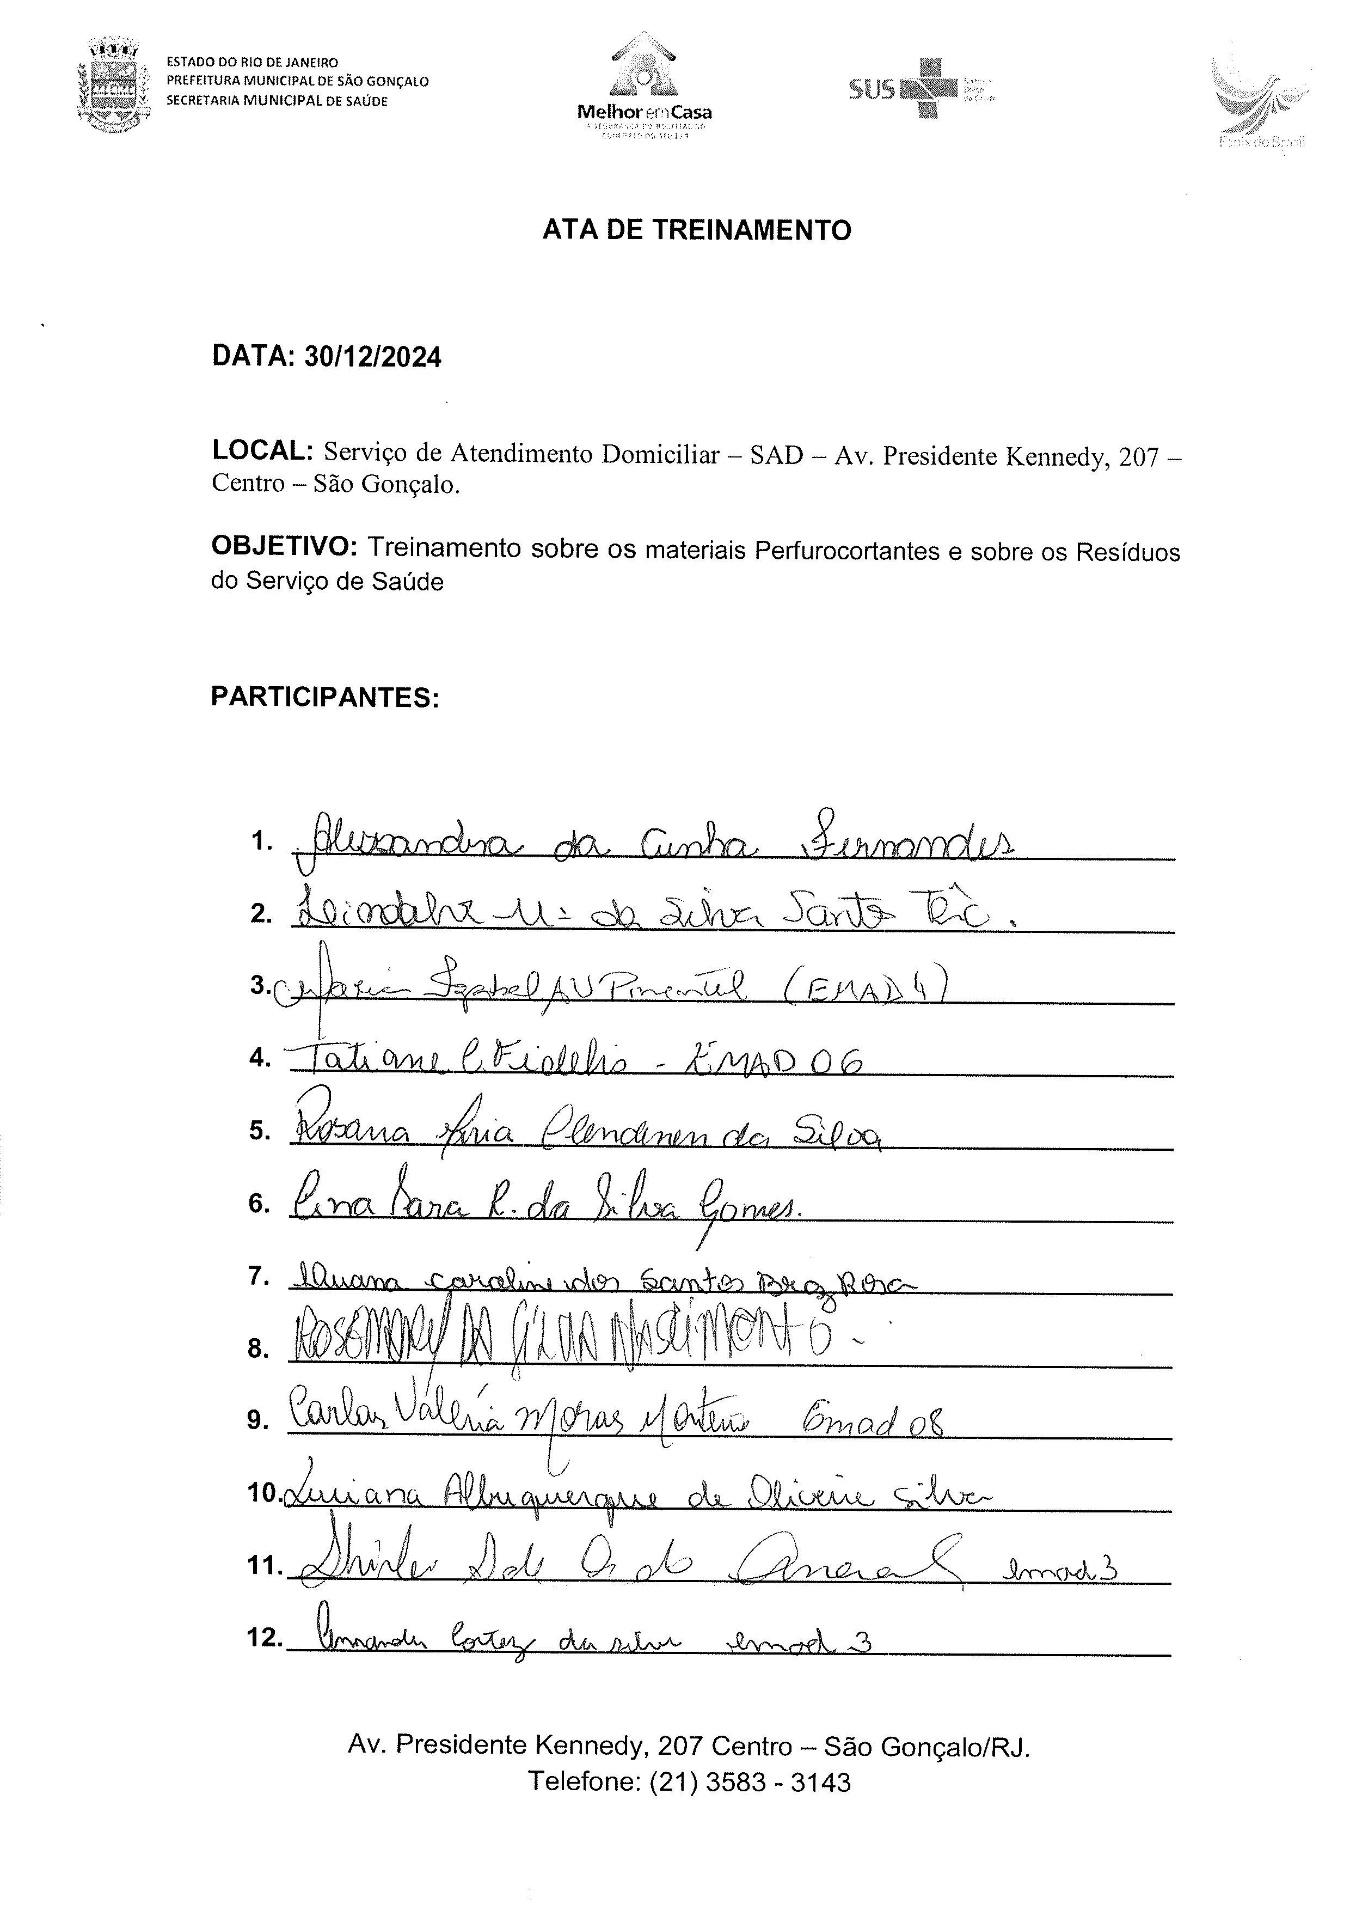 ESTADO DO RIO DE JANEIRO
PREFEITURA MUNICIPAL DE SÃO GONÇALO
SECRETARIA MUNICIPAL DE SAÚDE
Melhor em Casa
SUS
ATA DE TREINAMENTO
DATA: 30/12/2024
LOCAL: Serviço de Atendimento Domiciliar – SAD – Av. Presidente Kennedy, 207 –
Centro – São Gonçalo.
OBJETIVO: Treinamento sobre os materiais Perfurocortantes e sobre os Resíduos
do Serviço de Saúde
PARTICIPANTES:
1. Alexandra da Cunha Fernandes
2. Mª da Silva Santo
3. Maria Izabel AV Pimentel (EMAD 4)
4. Tatiane C. Fidelis - EMAD 06
5. Rosana da Silva
6. Ana Sara R. da Silva Gomes.
7. Caroline dos Santos Braz Rosa
8. ROSEMARY DA NASCIMENTO -
9. Valéria Monteiro Emad 08
10. Luciana Albuquerque de Oliveira Silva
11. Shirley emad 3
12. Cortez da Silva emad 3
Av. Presidente Kennedy, 207 Centro – São Gonçalo/RJ.
Telefone: (21) 3583 - 3143